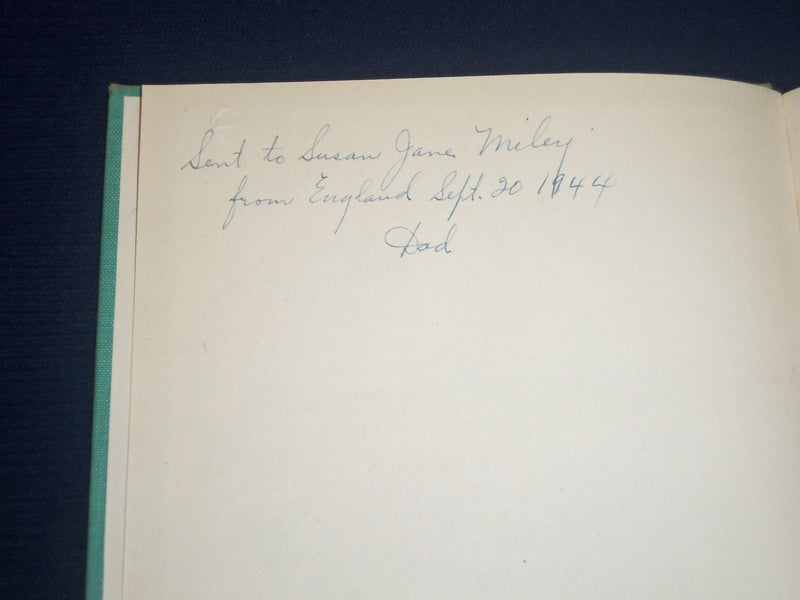 Sent to Susan Jane Miley
from England Sept. 20 1944
Dad